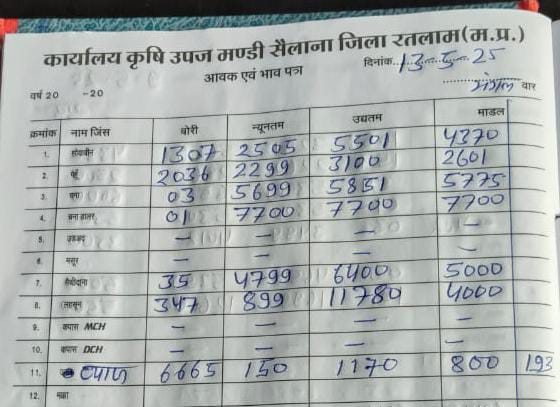 कार्यालय कृषि उपज मण्डी सैलाना जिला रतलाम(म.प्र.)
आवक एवं भाव पत्र
दिनांक..13-5-25
वर्ष 20 -20
मंगल वार
क्रमांक नाम जिंस बोरी न्यूनतम उच्चतम माडल
1. सोयाबीन 1307 2505 5501 4370
2. गेहूँ 2036 2299 3100 2601
3. चना 03 5699 5851 5775
4. चना डालर 01 7700 7700 7700
5. उड़द — — — —
6. मसूर — — — —
7. मैथीदाना 35 4799 6400 5000
8. लहसून 347 899 11780 4000
9. कपास MCH — — — —
10. कपास DCH — — — —
11. प्याज 6665 150 1170 800 193
12. मक्का